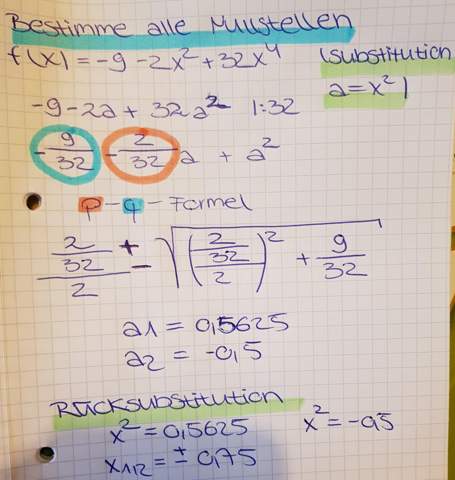 Bestimme alle Nullstellen
f(x) = -9 - 2x² + 32x⁴ (Substitution
a = x²)
-9 - 2a + 32a² |:32
-9/32 - 2/32 a + a²
p-q-Formel
(2/32)/2 ± √(((2/32)/2)² + 9/32)
a1 = 0,5625
a2 = -0,5
Rücksubstitution
x² = 0,5625 x² = -0,5
x1/2 = ± 0,75